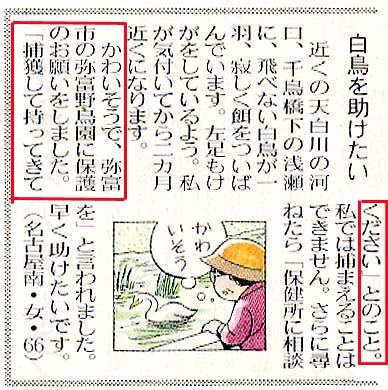 白鳥を助けたい
近くの天白川の河
口、千鳥橋下の浅瀬
に、飛べない白鳥が一
羽、寂しく餌をついば
んでいます。左足もけ
がをしているよう。私
が気付いてから二カ月
近くになります。
かわいそうで、弥富
市の弥富野鳥園に保護
のお願いをしました。
「捕獲して持ってきて
ください」とのこと。
私では捕まえることは
できません。さらに尋
ねたら「保健所に相談
を」と言われました。
早く助けたいです。
（名古屋南・女・66）
かわ
いそう